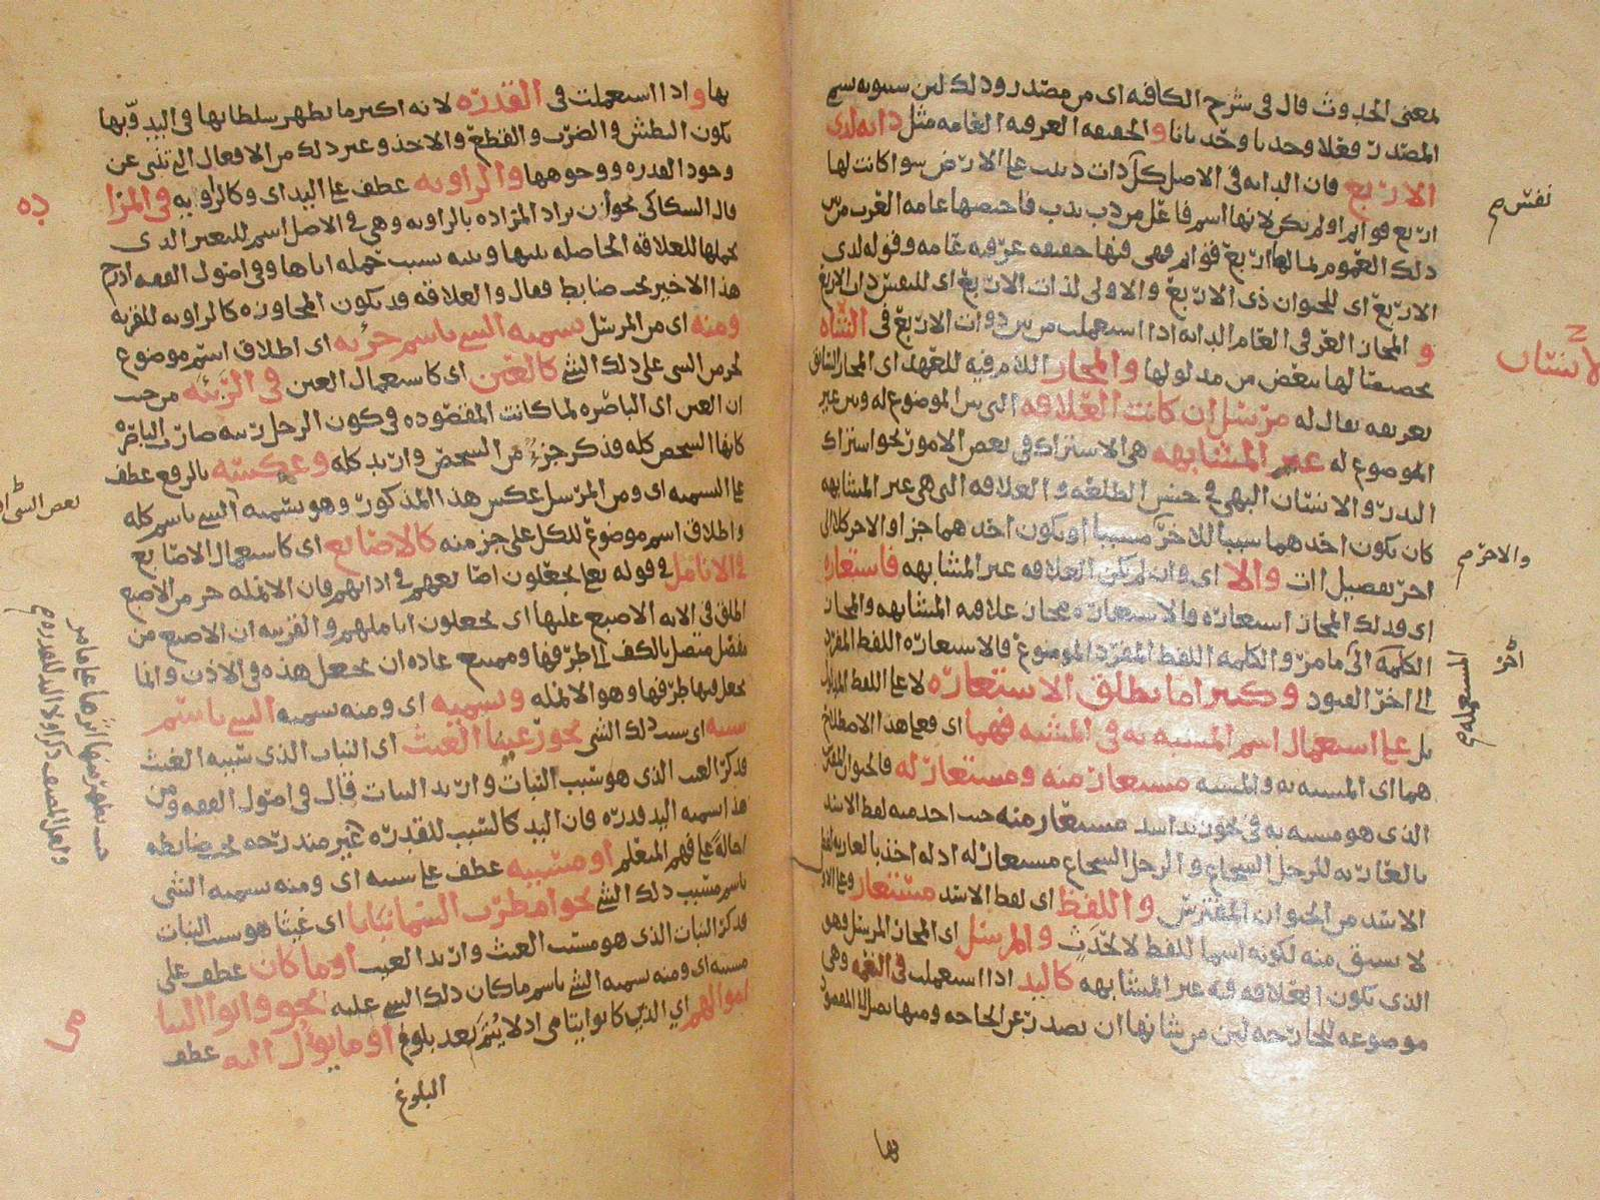 لمعنى الحدوث قال في شرح الكافيه اى من مصدر وذلك لان سيبويه سمى
المصدر فعلا وحدثا وحدثانا والحقيقه العرفيه العامه مثل دابه لذى
الاربع فان الدابه في الاصل لكل ذات دبيب على الارض سوا كانت لها
اربع قوائم او لم يكن لانها اسم فاعل من دب يدب فاختصها عامه العرب من بين
ذلك العموم لما لها اربع قوائم فهى فيها حقيقه عرفيه عامه وقوله لذى
الاربع اى للحيوان ذى الاربع والاولى لذات الاربع
و المجاز العرفي العام الدابه اذا استعملت من بين ذوات الاربع في الشاه
تخصيصا لها ببعض من مدلولها والمجاز اللام فيه للعهد اى المجاز السابق
تعريفه يقال له مرسل ان كانت العلاقه التي بين الموضوع له وبين غير
الموضوع له غير المشابهه هى الاشتراك في بعض الامور نحو اشتراك
البدر والانسان البهي في حسن الطلعه والعلاقه التي هى غير المشابهه
كان يكون احدهما سببا للاخر مسببا او يكون احدهما جزا والاخر كلا الى
اخر تفصيل ات والا اى وان لم تكن العلاقه غير المشابهه فاستعاره
اى فذلك المجاز استعاره فالاستعاره مجاز علاقه المشابهه والمجاز
الكلمه الى ما مر والكلمه اللفظ المفرد الموضوع فالاستعاره اللفظ المفرد
الى اخر القيود وكثيرا ما يطلق الاستعاره لا على اللفظ
بل على استعمال اسم المشبه به في المشبه فهما اى فعلى هذا الاصطلاح
هما اى المشبه به والمشبه مستعار منه ومستعار له فالحيوان المفترس
الذى هو مشبه به في نحو زيد اسد مستعار منه حيث اخذ منه لفظ الاسد
بالعاريه للرجل الشجاع و الرجل الشجاع مستعار له اذ له اخذ بالعاريه لفظ
الاسد من الحيوان المفترس واللفظ اى لفظ الاسد مستعار
لا سبق منه لكونه اسما للفظ لا لحدث والمرسل اى المجاز المرسل وهو
الذى تكون العلاقه فيه غير المشابهه كاليد اذا استعملت في النعمه وهى
موضوعه للجارحه لان من شانها ان تصدر عن الجارحه ومنها يصل الى المقصود
بها
نفس م
لانسان
والاخر م
اخر
المستعمله م
بها واذا استعملت في القدره لانه اكثر ما يظهر سلطانها في اليد وبها
يكون البطش والضرب والقطع والاخذ وغير ذلك من الافعال التي تنبى عن
وجود القدره ووجوهها والراويه عطف على اليد اى وكالراويه في المزا
قال السكاكي نحو ان يراد المزاده بالراويه وهي في الاصل اسم للبعير الذى
يحملها للعلاقه الحاصله بينها وبينه بسبب حمله اياها وفي اصول الفقه ادرج
هذا الاخير تحت ضابط فقال والعلاقه قد تكون المجاوره كالراويه للقربه
ومنه اى من المرسل تسميه الشي باسم جزئه اى اطلاق اسم موضوع
لجزء من الشي على ذلك الشي كالعين اى كاستعمال العين في الربيئه من حيث
ان العين اى الباصره لما كانت المقصوده في كون الرجل ربيئه صارت الباصره
كانها الشخص كله فذكر جزء من الشخص واريد كله وعكسه بالرفع عطف
على التسميه اى ومن المرسل عكس هذا المذكور وهو تسميه الشي باسم كله
واطلاق اسم موضوع للكل على جز منه كالاصابع اى كاستعمال الاصابع
في الانامل في قوله تعالى يجعلون اصابعهم في اذانهم فان الانمله جز من الاصبع
اطلق في الايه الاصبع عليها اى يجعلون اناملهم والقرينه ان الاصبع من
مفصل متصل بالكف الى طرفها وممتنع عاده ان يجعل هذه في الاذن وانما
يجعل فيها طرفها وهو الانمله وتسميه اى ومنه تسميه الشي باسم
سببه اى سبب ذلك الشي نحو رعينا الغيث اى النبات الذى سببه الغيث
فذكر الغيث الذى هو سبب النبات واريد النبات قال في اصول الفقه ومن
هذا تسميه اليد قدره فان اليد كالسبب للقدره غير مندرجه
احالة على فهم المتعلم او مسببه عطف على سببه اى ومنه تسميه الشي
باسم مسبب ذلك الشي نحو امطرت السما نباتا اى غيثا هو سبب النبات
فذكر النبات الذى هو مسبب الغيث واريد الغيث او ما كان عطف على
مسببه اى ومنه تسميه الشي باسم ما كان ذلك الشي عليه نحو واتوا اليتا
اموالهم اي الذين كانوا يتامى اذ لا يتم بعد بلوغ او ما يؤل اليه عطف
البلوغ
ده
مى